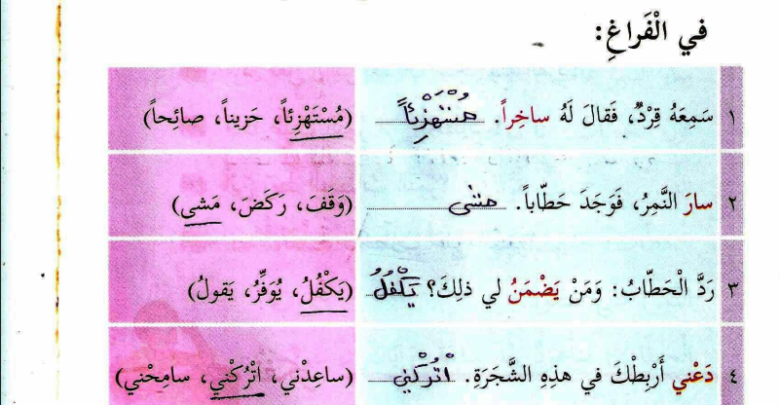 في الْفَراغِ:
١ سَمِعَهُ قِرْدٌ، فَقالَ لَهُ ساخِراً. مُسْتَهْزِئاً (مُسْتَهْزِئاً، حَزيناً، صائِحاً)
٢ سارَ النَّمِرُ، فَوَجَدَ حَطّاباً. مشى (وَقَفَ، رَكَضَ، مَشى)
٣ رَدَّ الْحَطّابُ: وَمَنْ يَضْمَنُ لي ذلِكَ؟ يَكْفُلُ (يَكْفُلُ، يُوَفِّرُ، يَقولُ)
٤ دَعْني أَرْبِطْكَ في هذِهِ الشَّجَرَةِ. اتْرُكْني (ساعِدْني، اتْرُكْني، سامِحْني)